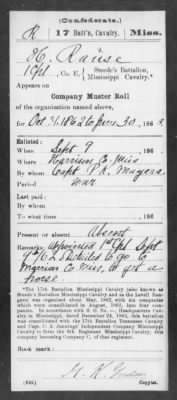 (Confederate.)
R | 17 Batt'n, Cavalry. | Miss.
H. Rause
1 Sgt, Co. E, Steede's Battalion,
Mississippi Cavalry.*
Appears on
Company Muster Roll
of the organization named above,
for Oct 31, 1862 to June 30, 1863.
Enlisted:
When Sept 9, 186
Where Harrison Co. Miss
By whom Capt P. K. Mayers
Period War
Last paid:
By whom
To what time , 186
Present or absent Absent
Remarks: Appointed 1st Sgt Sept
9" 62. Detailed to go to
Harrison Co Miss, to get a
horse
*The 17th Battalion Mississippi Cavalry (also known as
Steede's Battalion Mississippi Cavalry and as the
organized about May, 1862, with six companies
which were consolidated in August, 1863, into four com-
panies. In accordance with S. O. No. —, Headquarters Cav-
alry in Mississippi, dated December 24, 1863, this battalion
was consolidated with the 17th Battalion Tennessee Cavalry
and Capt. C. A. Jennings' Independent Company Mississippi
Cavalry to form the 9th Regiment Mississippi Cavalry, this
company becoming Company C, of that regiment.
Book mark:
(642) Copyist.